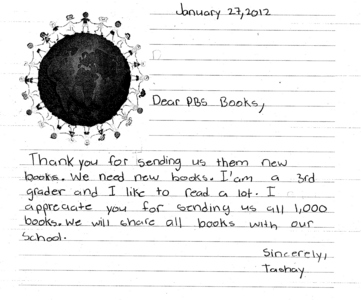 January 27, 2012
Dear PBS Books,
Thank you for sending us them new
books. We need new books. I'am a 3rd
grader and I like to read a lot. I
appreciate you for sending us all 1,000
books. We will share all books with our
school.
Sincerely,
Tashay